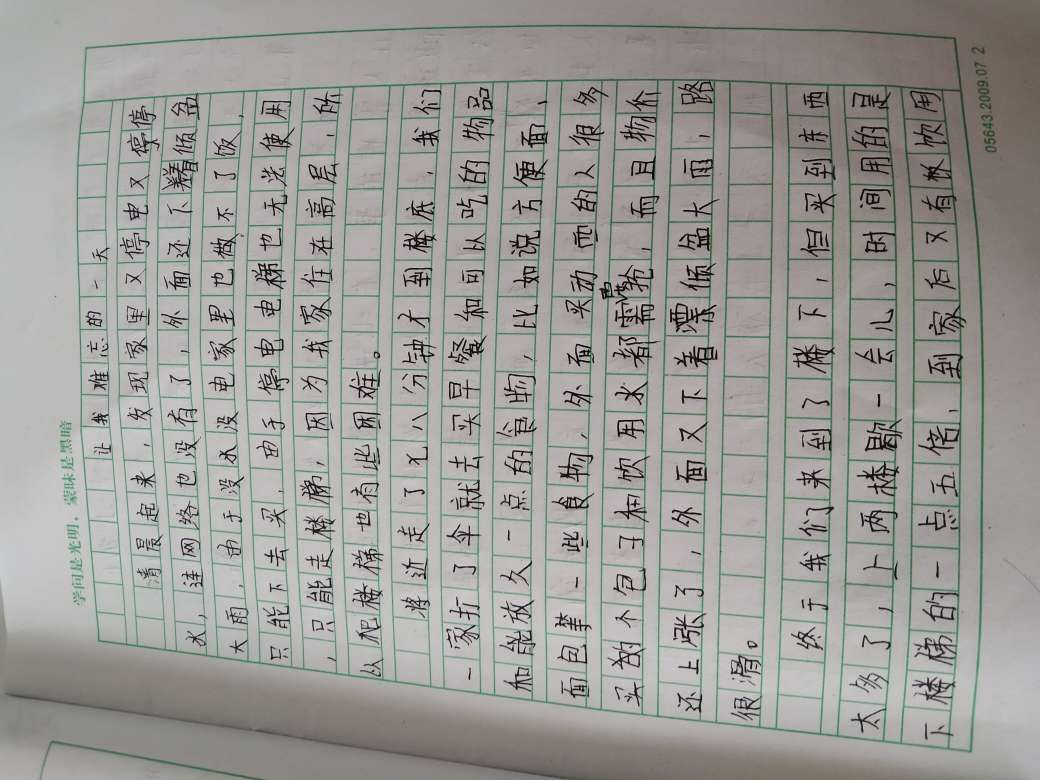 学问是光明，蒙昧是黑暗
让我难忘的一天
清晨起来，发现家里又停电又停停
水，连网络也没有了，外面还下着倾盆
大雨，由于没水没电家里也做不了饭，
只能下去买，由于停电电梯也无法使用
，只能走楼梯，因为我家住在高层，所
以爬楼梯也有些困难。
将近走了七八分钟才到楼底，我们
一家打了伞就去买早餐和可以吃的物品
和能放久一点的食物，比如说方便面，
面包等一些食物，外面买东西的人很多
买的个包子和饮用水都需要抢，而且物价
还上涨了，外面又下着漂倾盆大雨，路
很滑。
终于我们来到了楼下，但买到东西
太多了，上两楼歇一会儿，时间用的是
下楼梯的一点五倍，到家后又有饮用
05643.2009.07 2